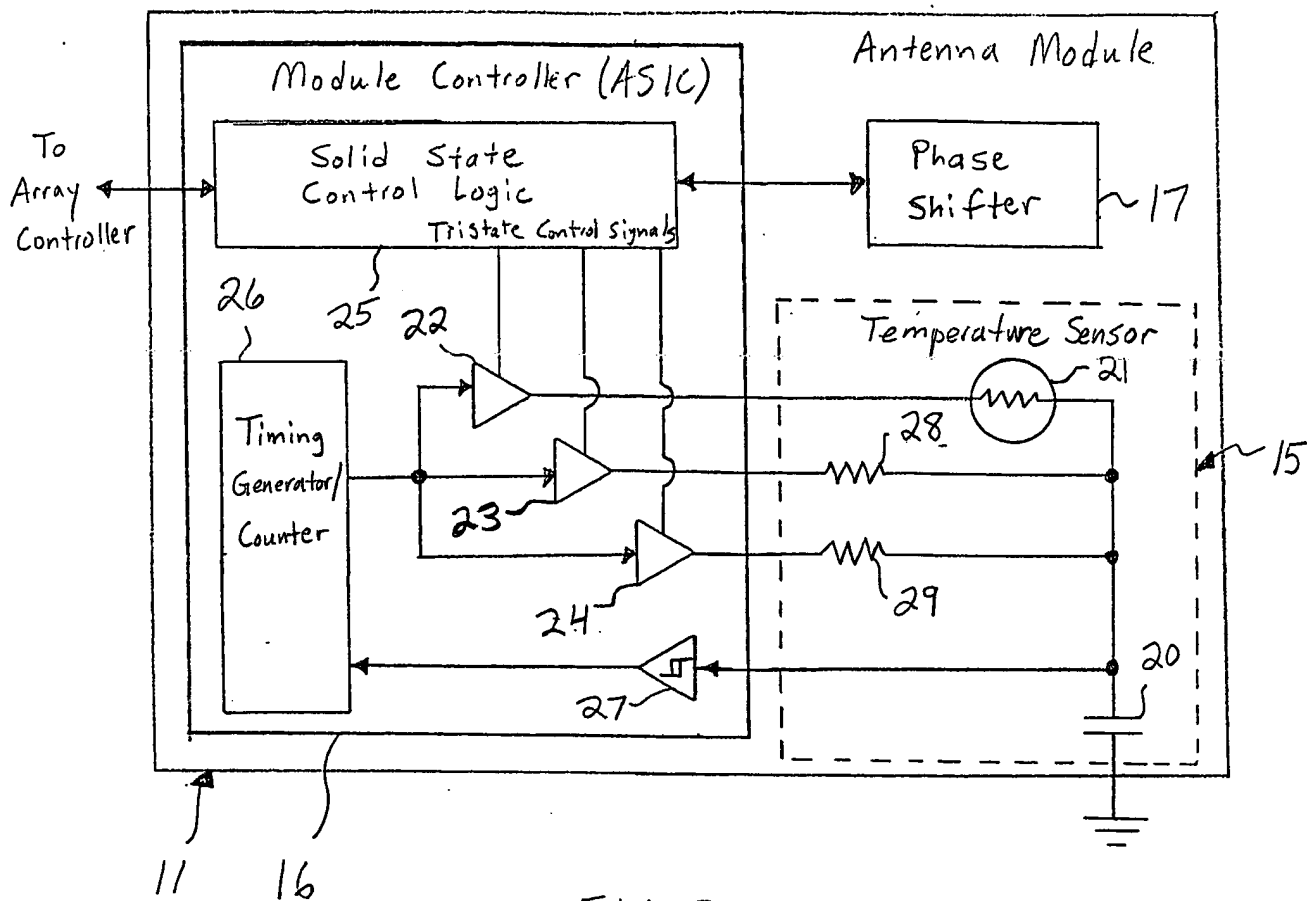 Antenna Module
Module Controller (ASIC)
To
Array
Controller
Solid State
Control Logic
Tristate Control Signals
Phase
Shifter
17
26
25
22
Temperature Sensor
21
Timing
Generator/
Counter
28
15
23
29
24
20
27
11
16